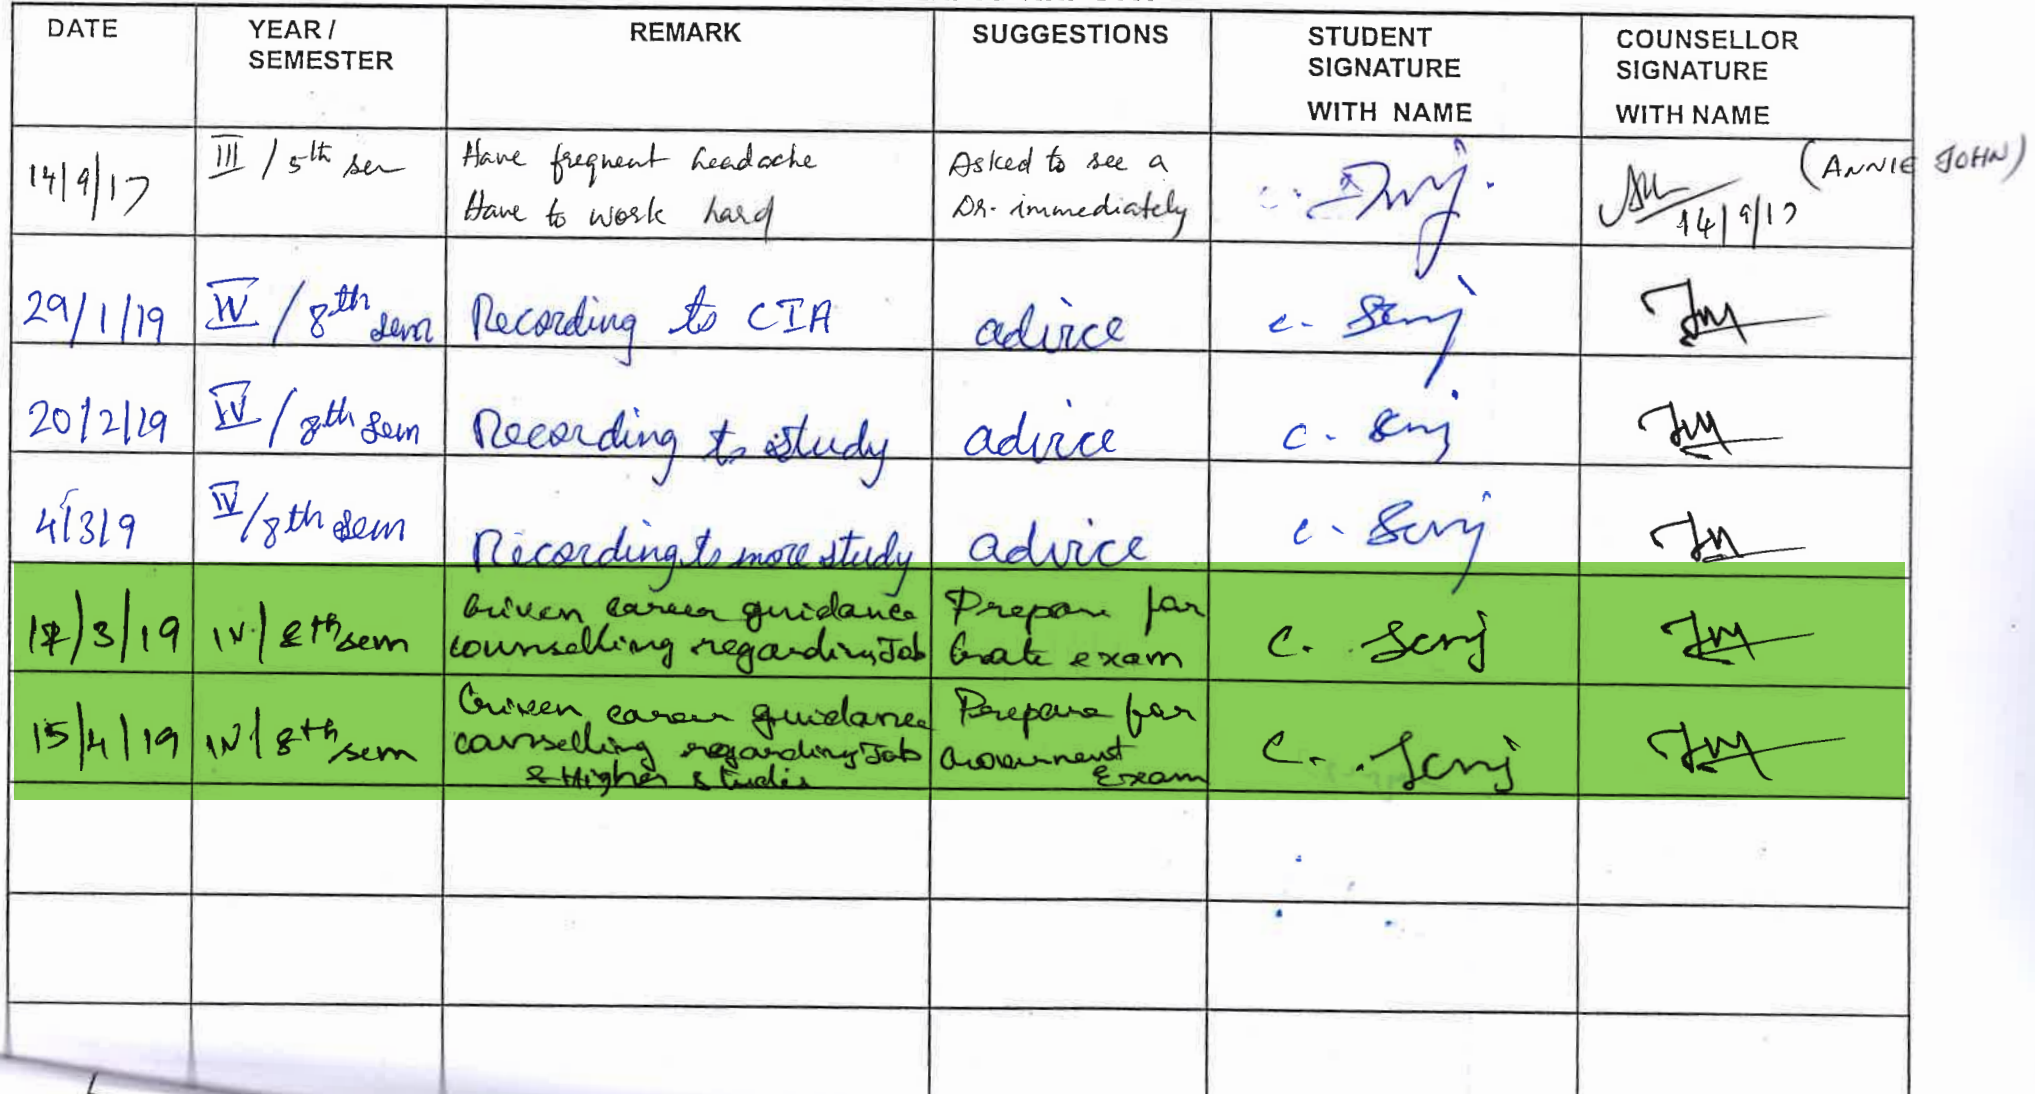 DATE
YEAR /
SEMESTER
REMARK
SUGGESTIONS
STUDENT
SIGNATURE
WITH NAME
COUNSELLOR
SIGNATURE
WITH NAME
14/9/17
III / 5th sem
Have frequent headache
Have to work hard
Asked to see a
Dr. immediately
(ANNIE JOHN)
14/9/17
29/1/19
IV / 8th sem
Recording to CIA
advice
c.
20/2/19
IV / 8th sem
Recording to study
advice
c.
4/3/9
IV / 8th sem
Recording to more study
advice
c.
/3/19
IV / 8th sem
Given career guidance
counselling regarding Job
Prepare for
Gate exam
c.
15/4/19
IV / 8th sem
Given career guidance
counselling regarding Job
& Higher studies
Prepare for
Government
Exam
c.